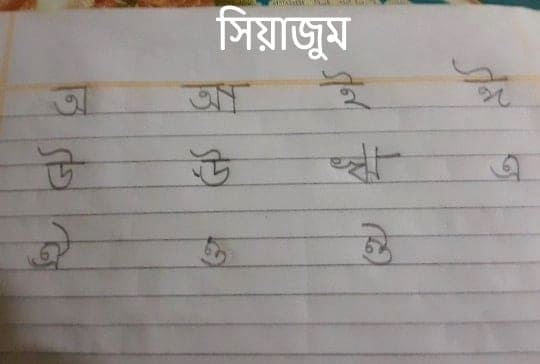 সিয়াজুম
অ আ ই ঈ
উ ঊ ঋ এ
ঐ ও ঔ